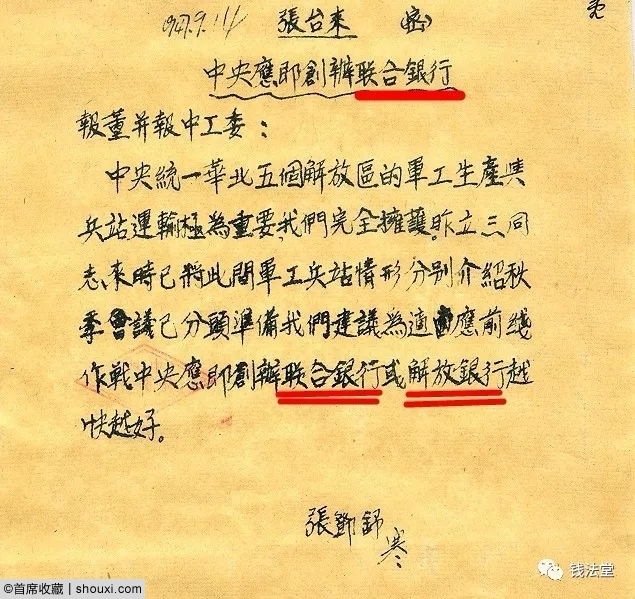 1947.9.14 張台来 密
中央應即創辦联合銀行
報董并報中工委：
中央統一華北五個解放區的軍工生產與
兵站運輸極為重要，我們完全擁護。昨立三同
志來時已將此間軍工兵站情形分别介紹秋
季會議已分頭準備我們建議為適應前线
作戰中央應即創辦联合銀行或解放銀行越
快越好。
張鄧
寒
钱法堂
©首席收藏 | shouxi.com